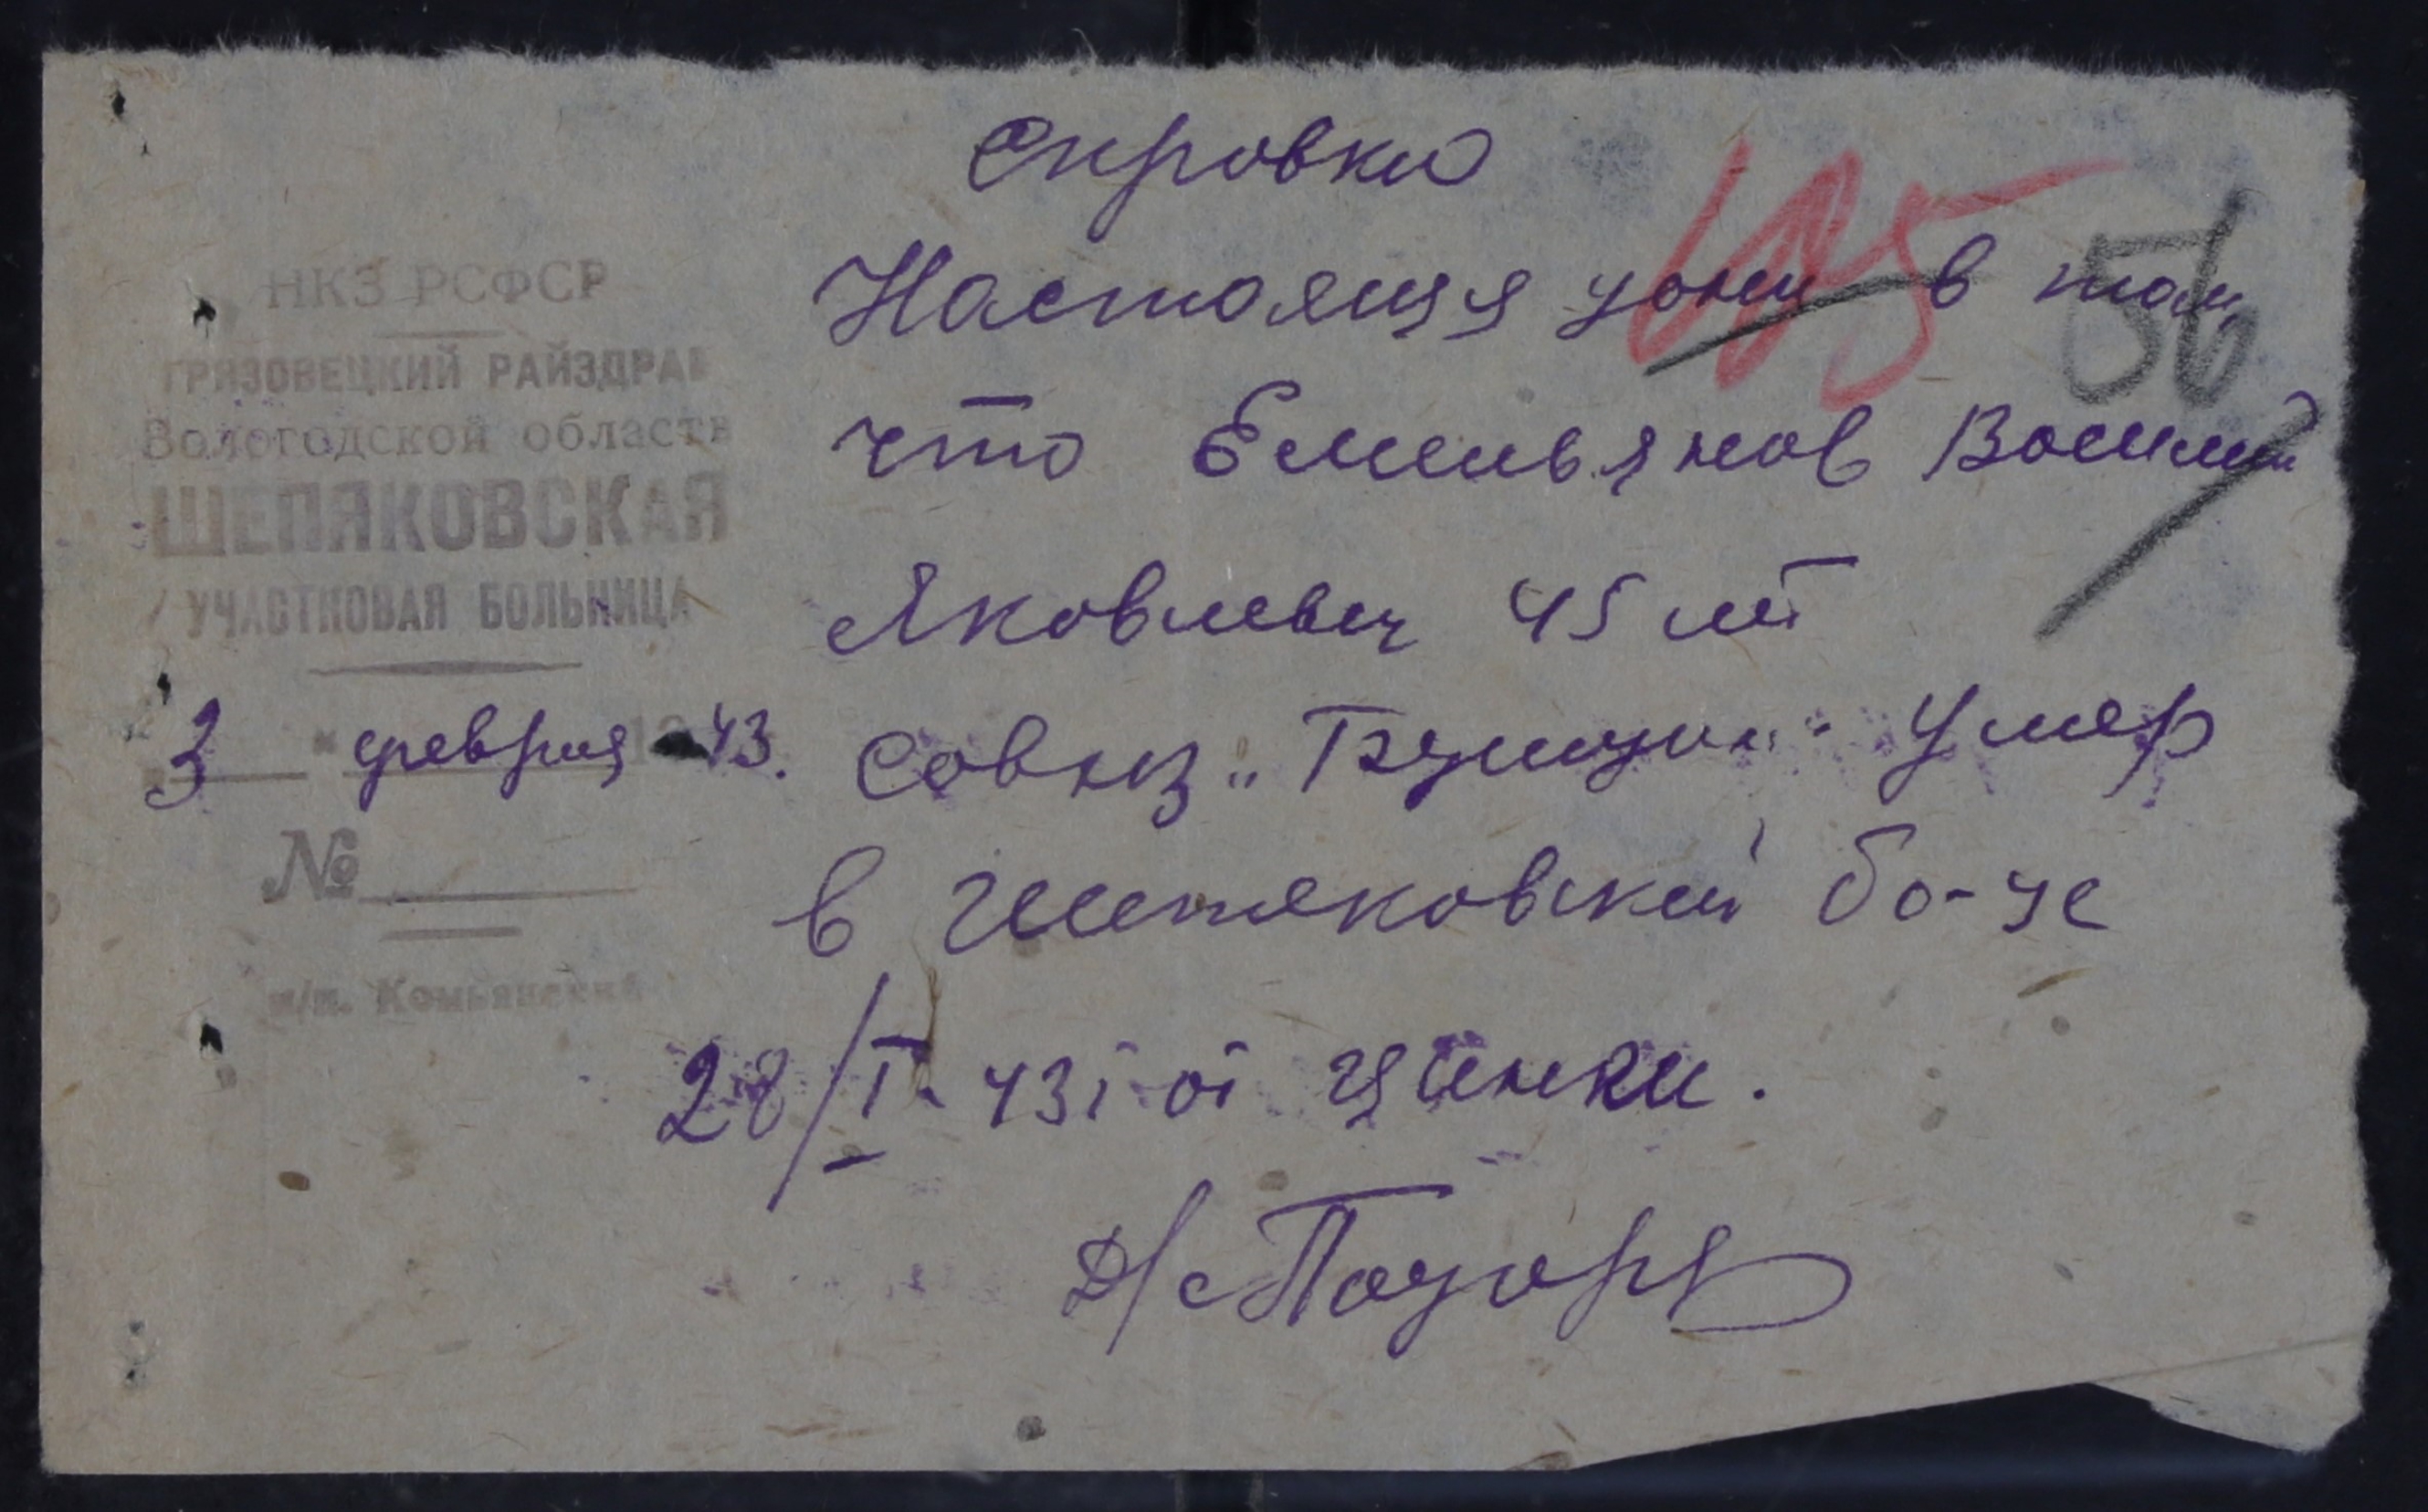 Справка
105
56
НКЗ РСФСР
ГРЯЗОВЕЦКИЙ РАЙЗДРАВ
Вологодской области
ШЕПЯКОВСКАЯ
УЧАСТКОВАЯ БОЛЬНИЦА
"3" февраля 1943.
№
п/п. Комьянская
Настоящая в том,
что Емельянов Василий
Яковлевич 45 лет
совхоз умер
в Шепяковской бо-це
28/I-43 г. от цинги.